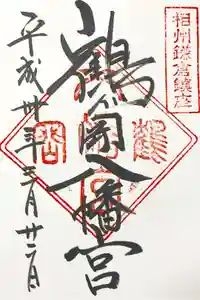 相州鎌倉鎮座
鶴岡八幡宮
平成卅年三月廿二日